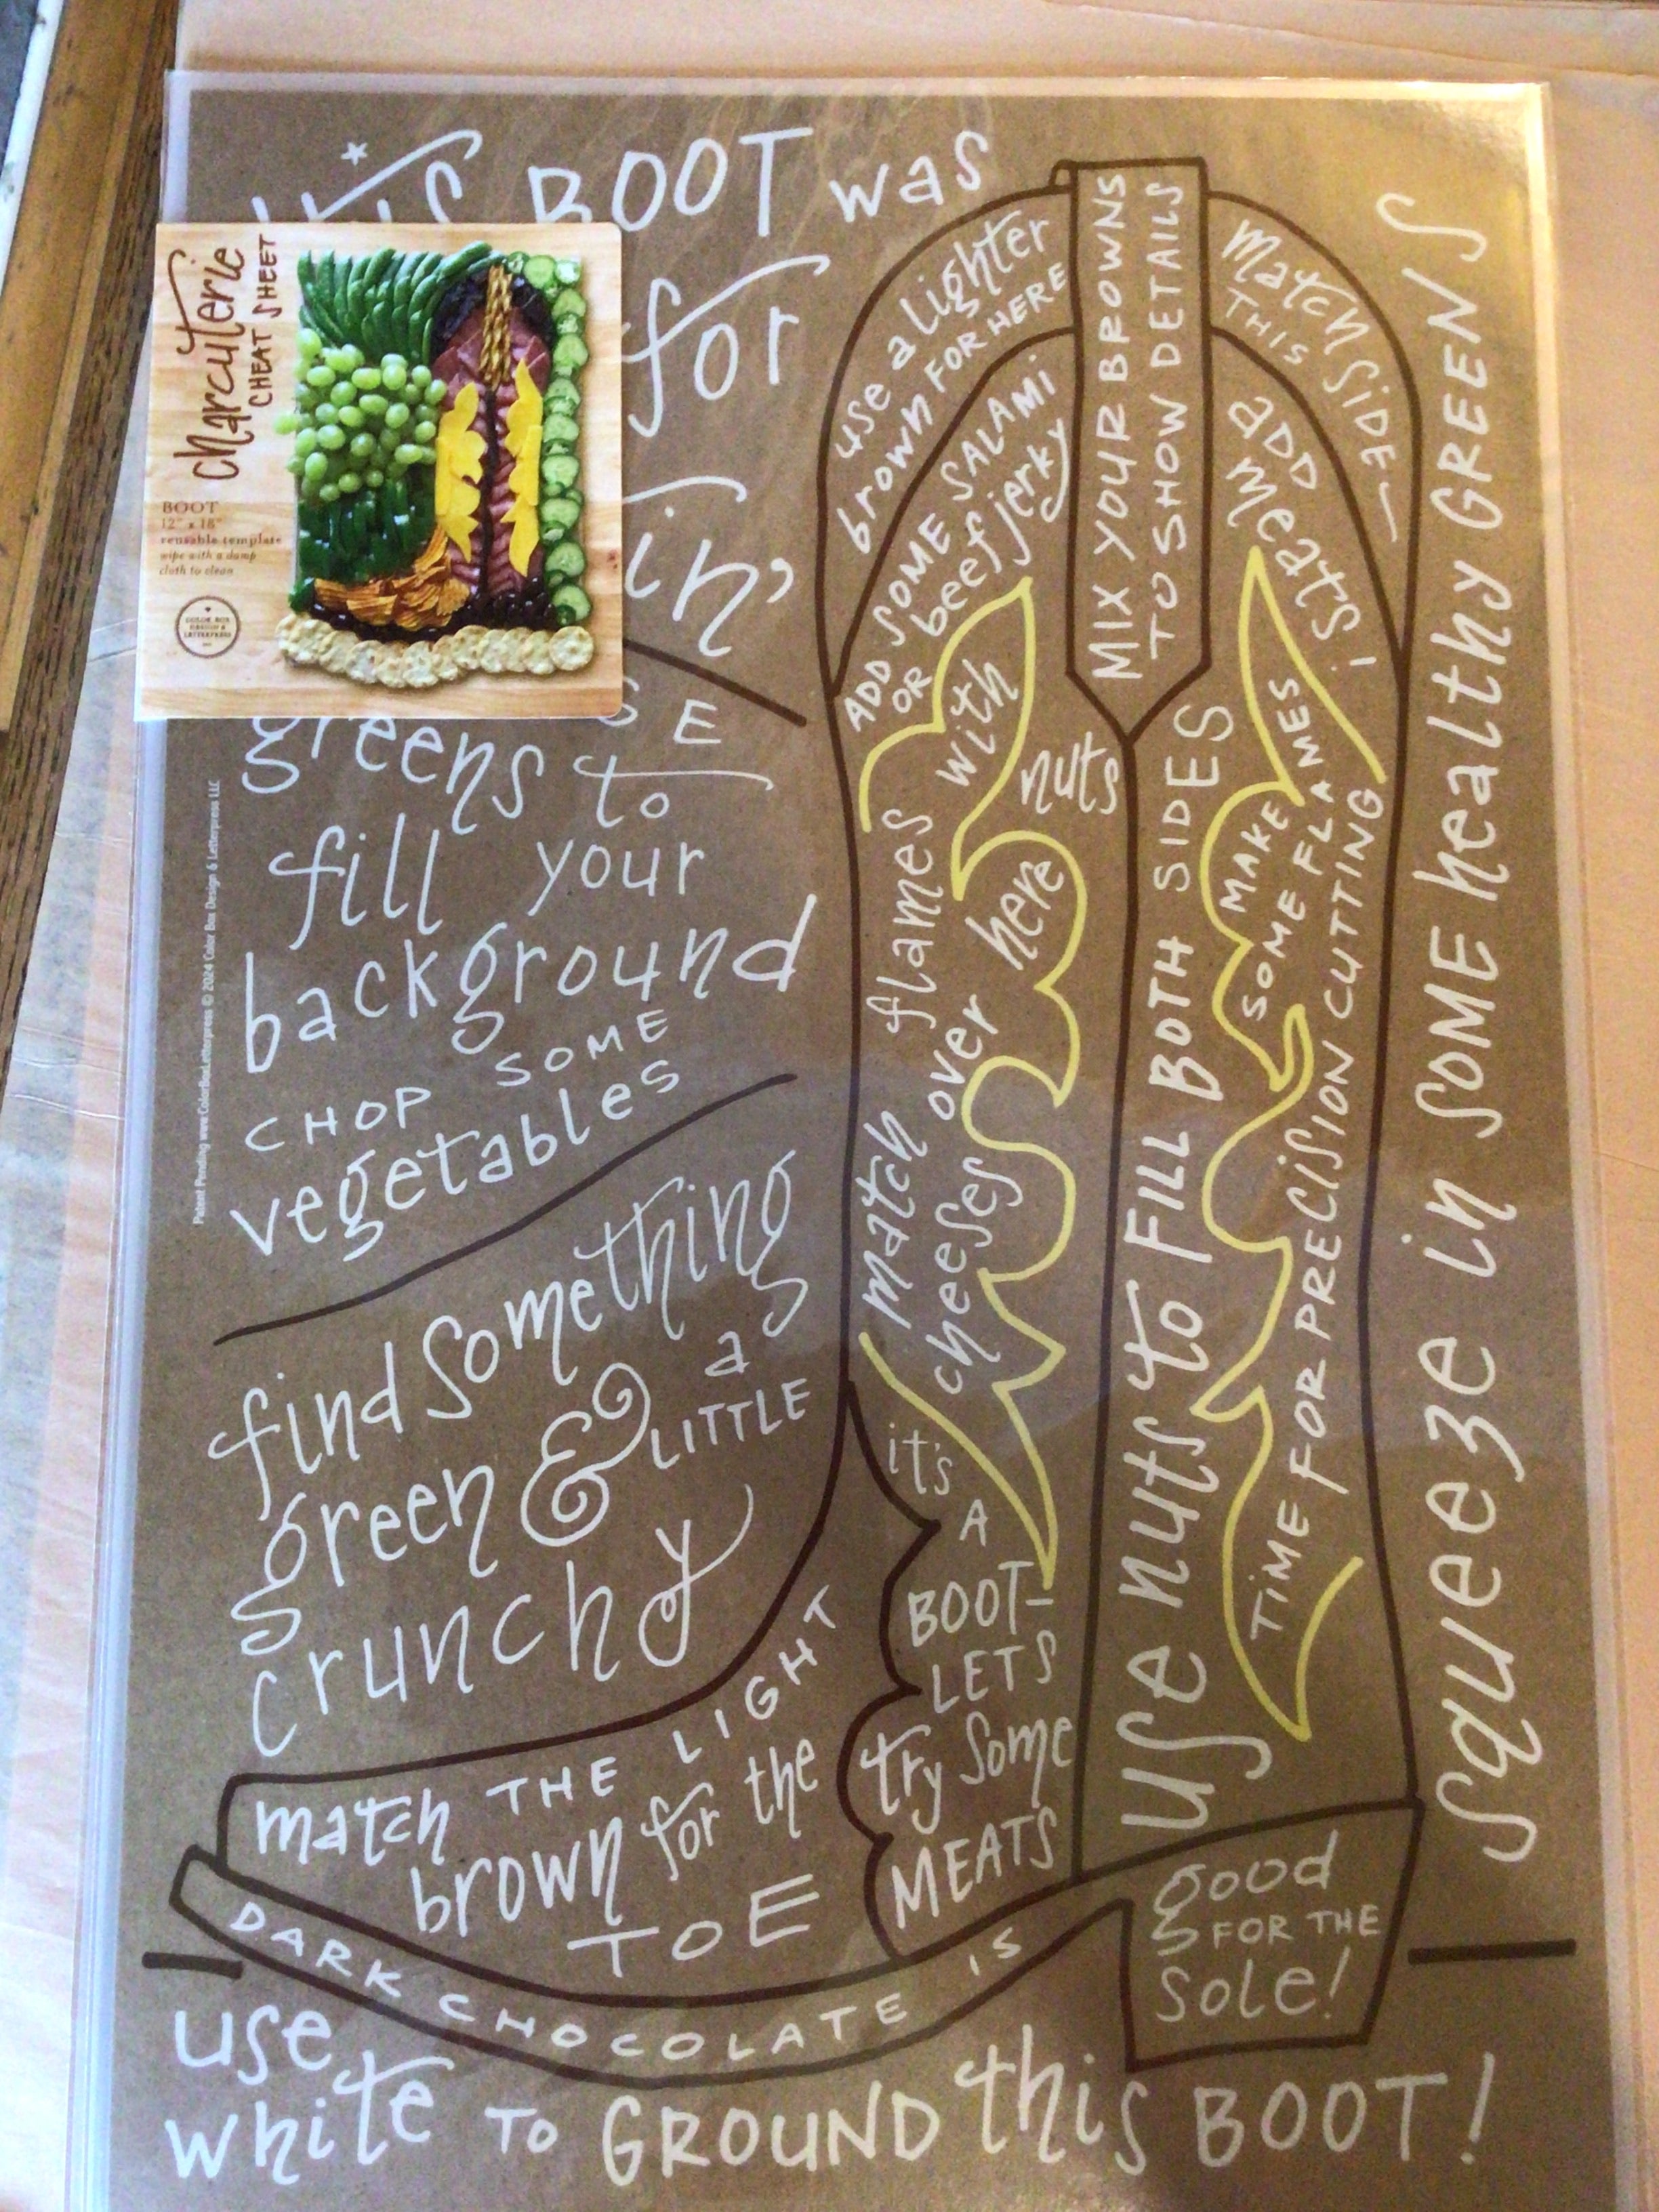 this BOOT was
for
in'
charcuterie
CHEAT SHEET
BOOT
12" x 18"
reusable template
wipe with a damp
cloth to clean
COLOR BOX
DESIGN &
LETTERPRESS
greens to
fill your
background
CHOP SOME
vegetables
find something
green & a
LITTLE
crunchy
Patent Pending www.ColorBoxLetterpress © 2024 Color Box Design & Letterpress LLC
use a lighter
brown FOR HERE
MIX YOUR BROWNS
TO SHOW DETAILS
match
THIS SIDE
ADD SOME SALAMI
OR beef jerky
ADD
meats!
with
nuts
here
match flames
cheeses over
use nuts to FILL BOTH SIDES
MAKE
SOME FLAMES
TIME FOR PRECISION CUTTING
squeeze in SOME healthy GREENS
it's
A
BOOT-
LETS
try some
MEATS
match THE LIGHT
brown for the
TOE
DARK CHOCOLATE IS
good
FOR THE
sole!
use
white TO GROUND this BOOT!